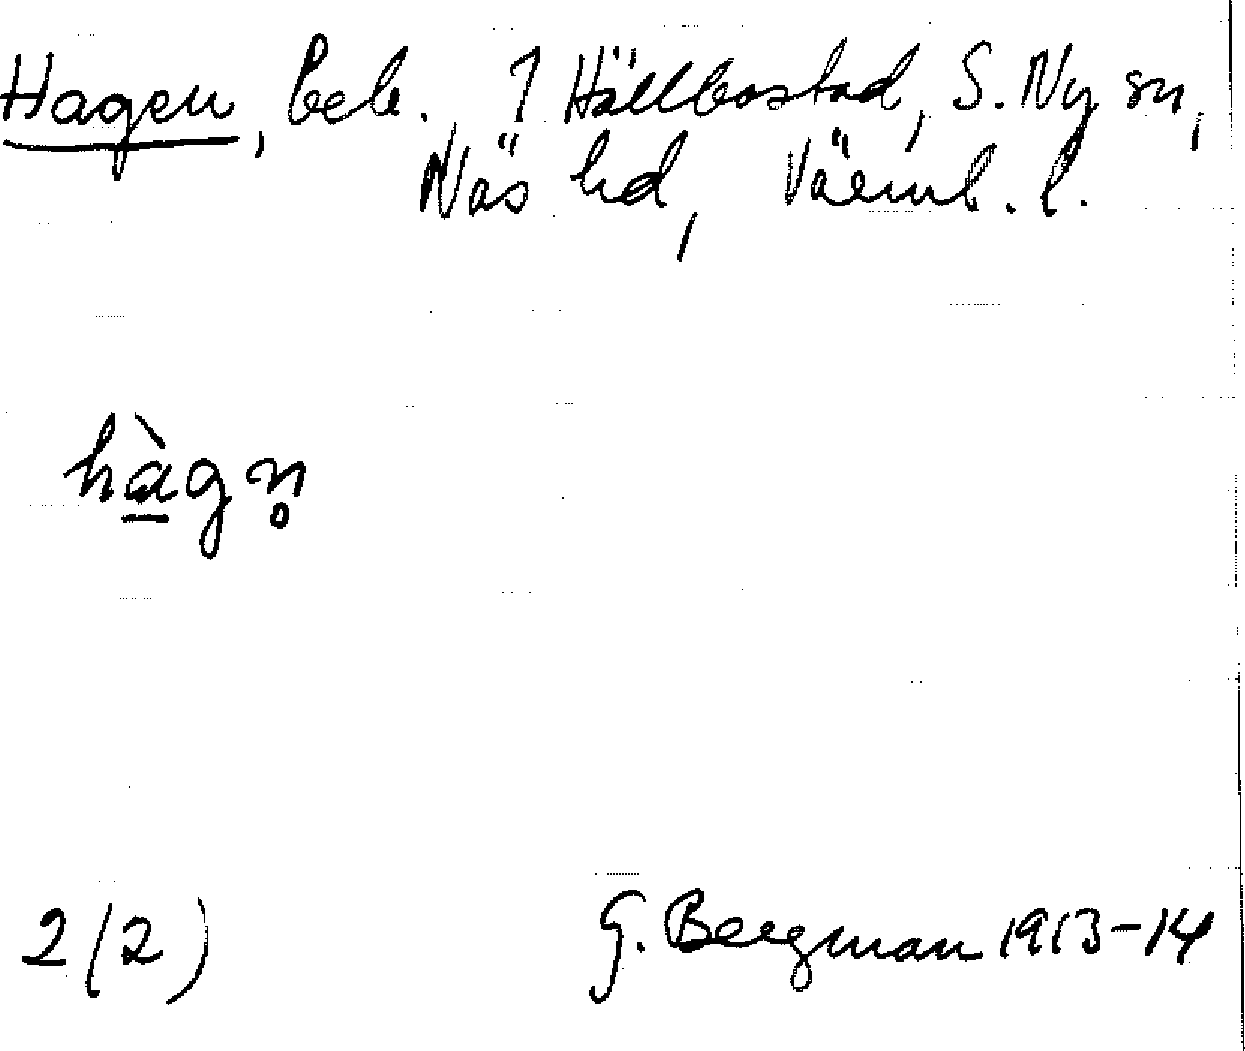 Hagen, beb. 1 Hällbostad, S. Ny sn,
Näs hd, Värml. l.
hàgn̥
2 (2)
G. Bergman 1913-14